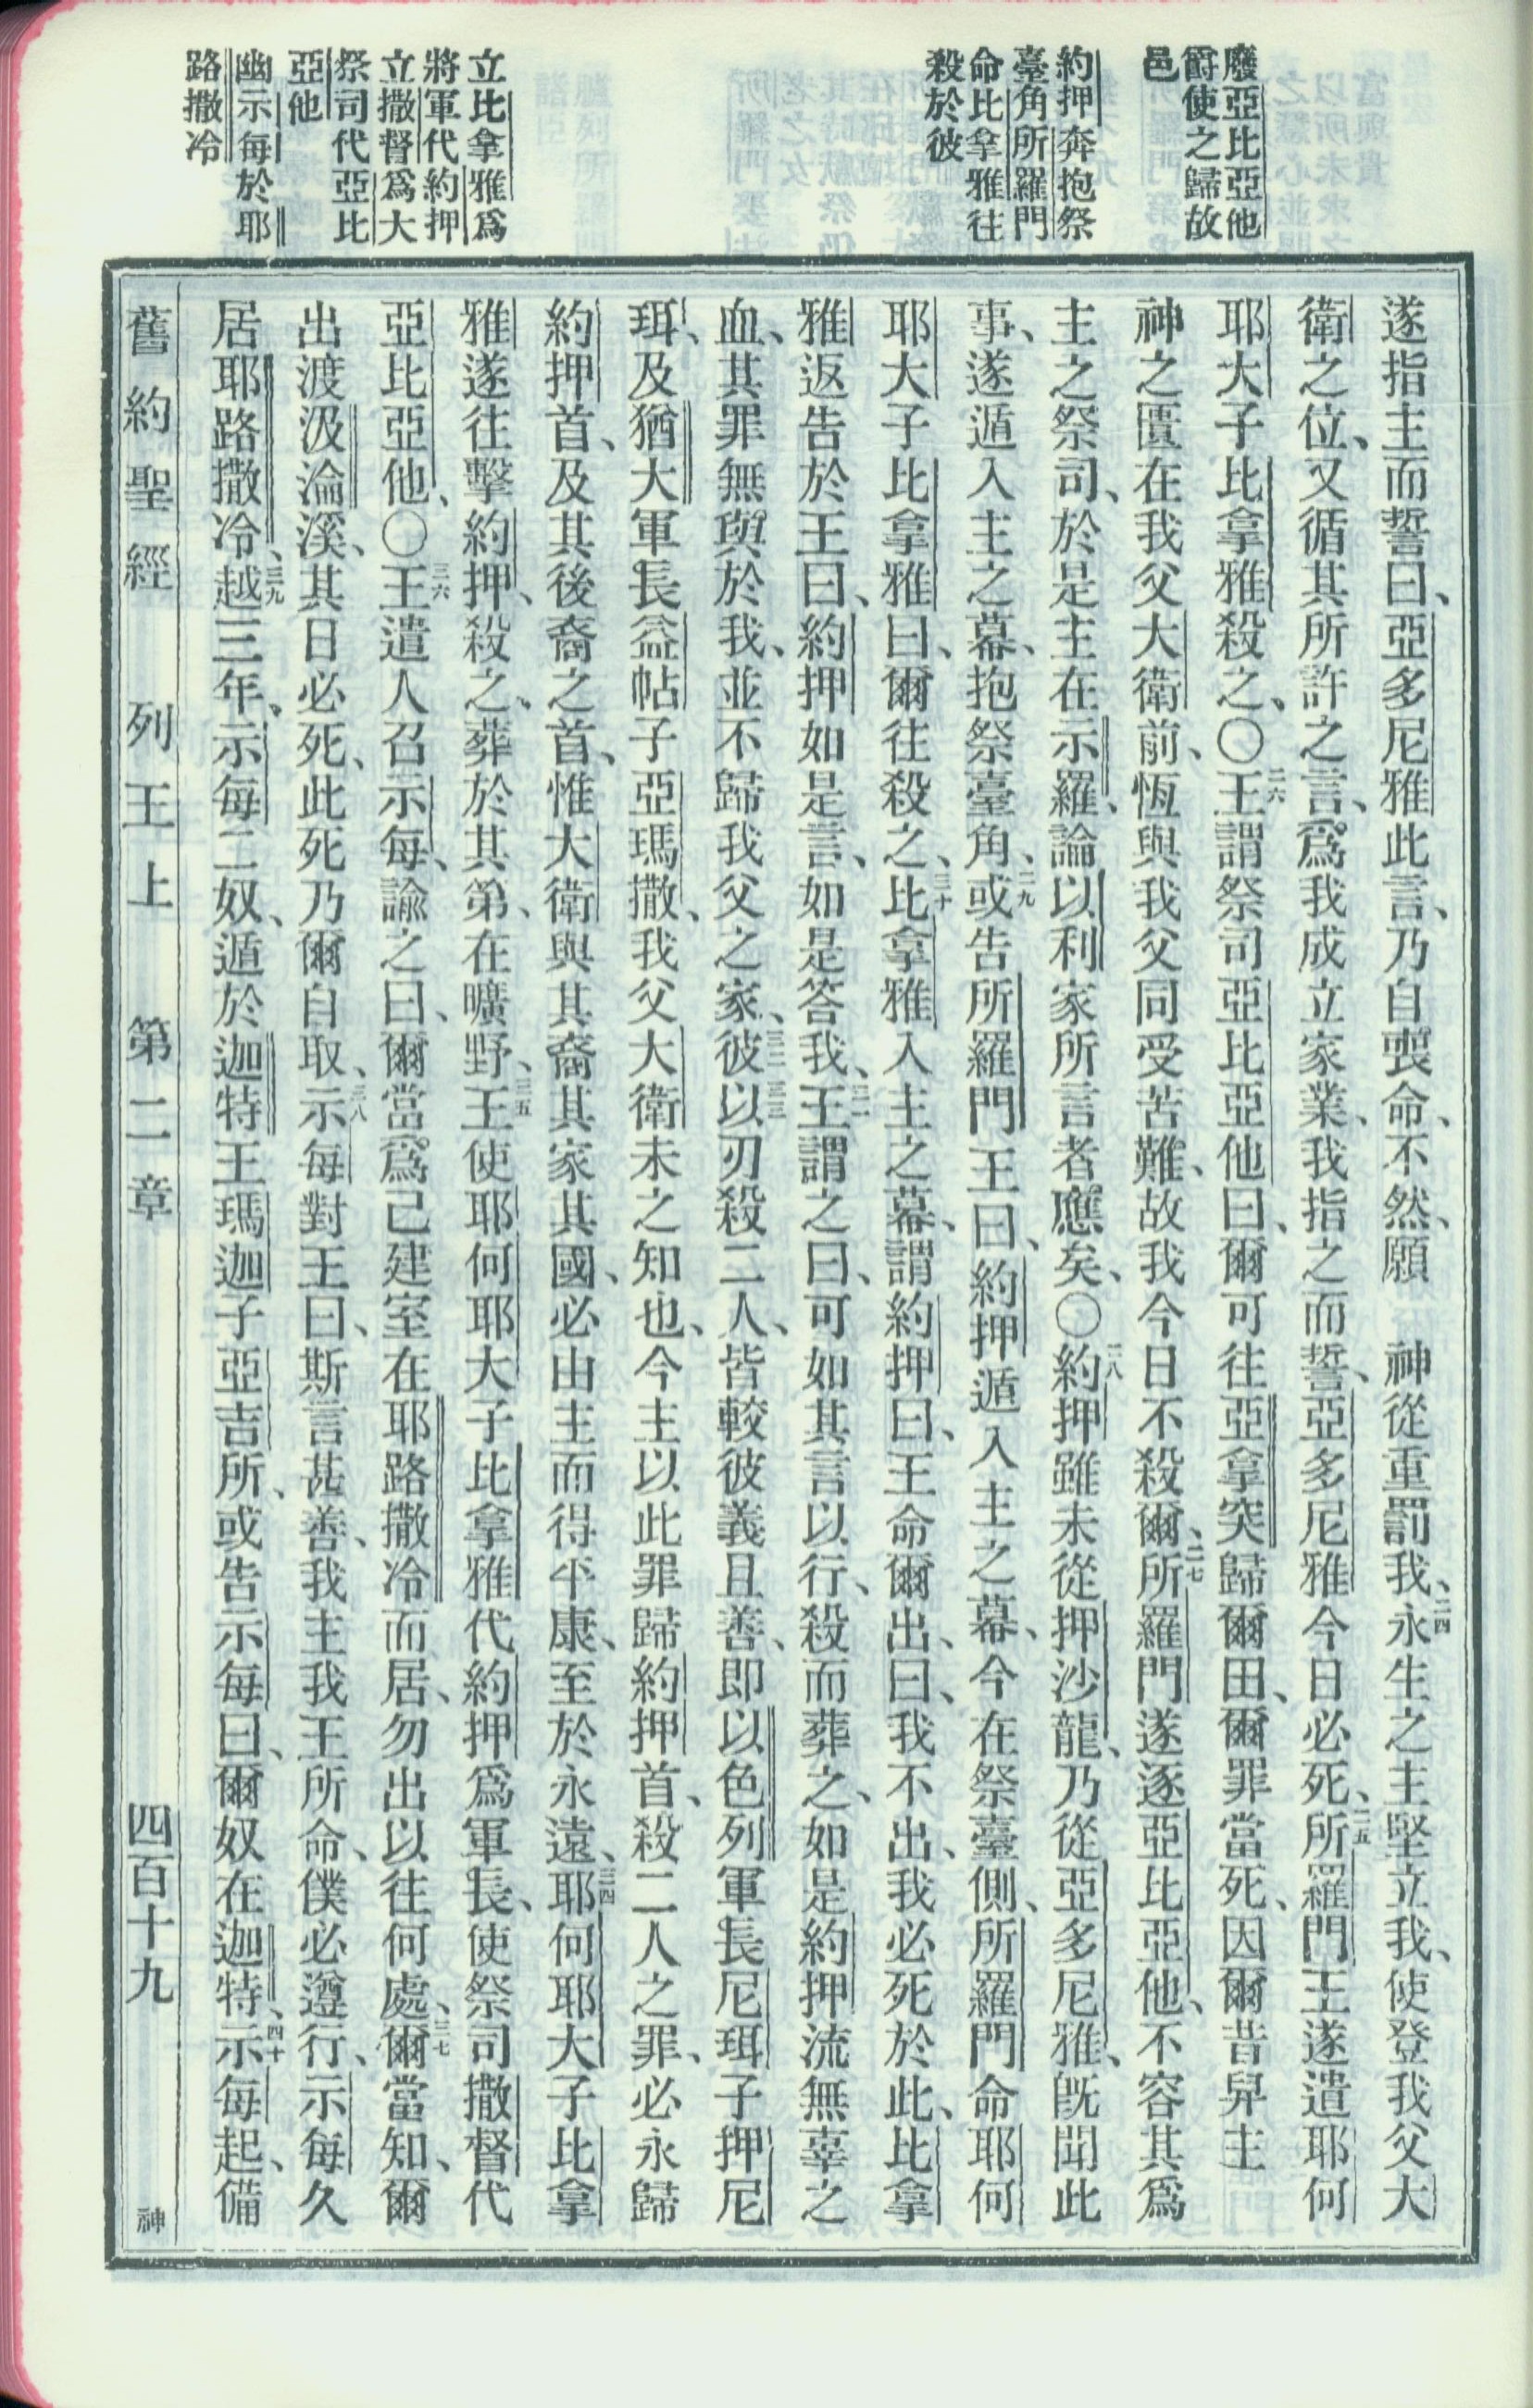 廢亞比亞他
爵使之歸故
邑
約押奔抱祭
臺角所羅門
命比拿雅往
殺於彼
立比拿雅爲
將軍代約押
立撒督爲大
祭司代亞比
亞他
幽示每於耶
路撒冷
遂指主而誓曰、亞多尼雅此言、乃自喪命、不然、願　神從重罰我、二四永生之主堅立我、使登我父大
衛之位、又循其所許之言、爲我成立家業、我指之而誓、亞多尼雅今日必死、二五所羅門王遂遣耶何
耶大子比拿雅殺之、〇二六王謂祭司亞比亞他曰、爾可往亞拿突歸爾田、爾罪當死、因爾昔舁主
神之匱在我父大衛前、恆與我父同受苦難、故我今日不殺爾、二七所羅門遂逐亞比亞他、不容其爲
主之祭司、於是主在示羅、論以利家所言者應矣、〇二八約押雖未從押沙龍、乃從亞多尼雅、旣聞此
事、遂遁入主之幕、抱祭臺角、二九或告所羅門王曰、約押遁入主之幕、今在祭臺側、所羅門命耶何
耶大子比拿雅曰、爾往殺之、三十比拿雅入主之幕、謂約押曰、王命爾出、曰、我不出、我必死於此、比拿
雅返告於王曰、約押如是言、如是答我、三一王謂之曰、可如其言以行、殺而葬之、如是約押流無辜之
血、其罪無與於我、並不歸我父之家、三二三三彼以刃殺二人、皆較彼義且善、即以色列軍長尼珥子押尼
珥、及猶大軍長益帖子亞瑪撒、我父大衛未之知也、今主以此罪歸約押首、殺二人之罪、必永歸
約押首、及其後裔之首、惟大衛與其裔其家其國、必由主而得平康、至於永遠、三四耶何耶大子比拿
雅遂往擊約押、殺之、葬於其第、在曠野、三五王使耶何耶大子比拿雅代約押爲軍長、使祭司撒督代
亞比亞他、〇三六王遣人召示每、諭之曰、爾當爲己建室在耶路撒冷而居、勿出以往何處、三七爾當知、爾
出渡汲淪溪、其日必死、此死乃爾自取、三八示每對王曰、斯言甚善、我主我王所命、僕必遵行、示每久
居耶路撒冷、三九越三年、示每二奴、遁於迦特王瑪迦子亞吉所、或告示每曰、爾奴在迦特、四十示每起、備
舊約聖經　列王上　第二章　四百十九　神